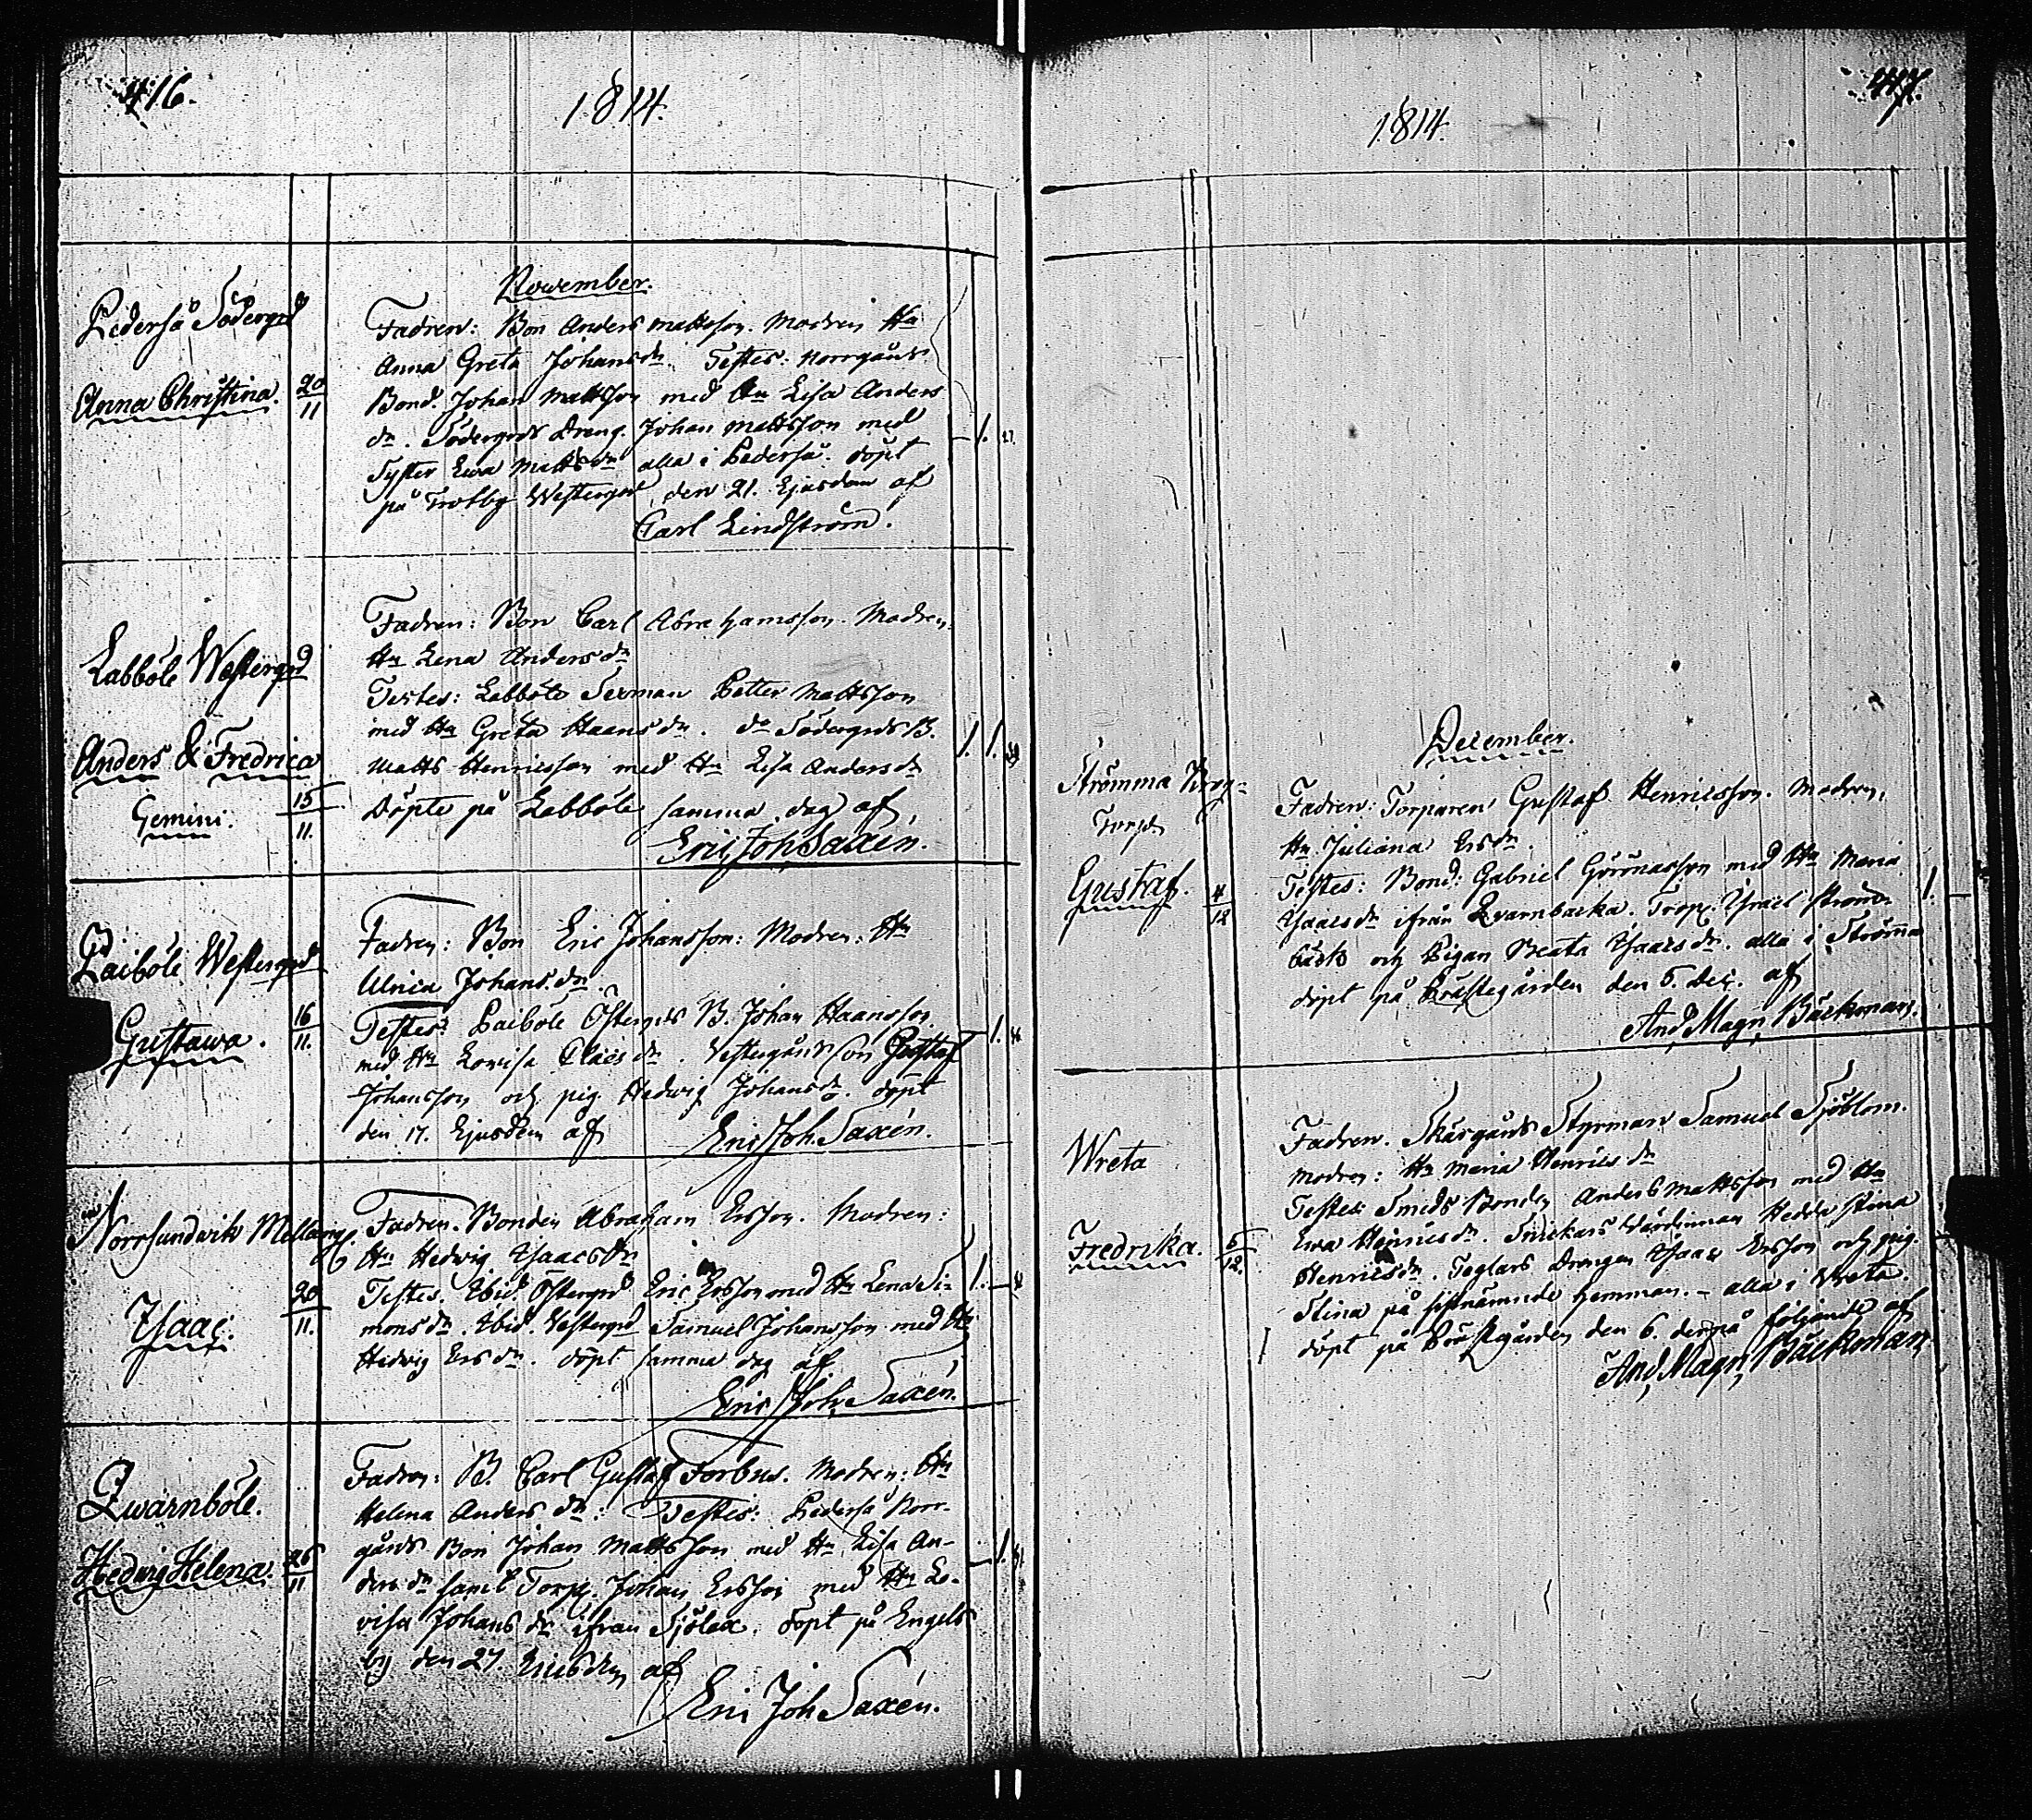 416.
1814.
November.
Pederså Södergrd
Anna Christina. 20/11
Fadren: Bon Anders Mattsson. Modren Hu
Anna Greta Johansdr. Testes: Norrgårds
Bond. Johan Mattsson med Hu Lisa Anders
dr. Södergrds Dreng. Johan Mattsson med
Syster Ewa Mattsdr alla i Pederså. döpt
på Trotby Westergrd den 21. Ejusdem af
Carl Lindström.
1. 27.
Labböle Westergrd
Anders & Fredrica
Gemini. 15/11.
Fadren: Bon Carl Abrahamsson. Modren:
Hu Lena Andersdr
Testes: Labböle Sexman Petter Mattsson
med Hu Greta Haansdr. do Södergrds B.
Matts Henricsson med Hu Lisa Andersdr
Döpte på Labböle samma dag af
Eric Joh Saxén.
1. 1.
Laiböle Westergrd
Gustawa. 16/11.
Fadren: Bon Eric Johansson: Modren: Hu
Ulrica Johansdr.
Testes: Laiböle Östergrds B. Johan Haansson
med Hu Lowisa Claesdr. Vestergårds son Gustaf
Johansson och pig. Hedwig Johansdr. döpt
den 17. Ejusdem af
Eric Joh Saxén.
1.
Norrsundvik Mellang.
Ysaac. 20/11.
Fadren. Bonden Abraham Ersson. Modren:
Hu Hedwig Ysaacsdr
Testes. Ibid. Östergrd Eric Ersson med Hu Lena Si-
monsdr. Ibid. Vestergrd Samuel Johansson med Hu
Hedwig Ersdr. döpt samma dag af
Eric Joh Saxén.
1.
Qwarnböle.
Hedwig Helena. 26/11
Fadren: B. Carl Gustaf Forbus. Modren: Hu
Helena Andersdr: Testes: Pederså Norr-
gårds Bon Johan Mattsson med Hu Lisa An-
dersdr samt Torp. Johan Ersson med Hu Lo-
visa Johansdr ifrån Sjölax. döpt på Engels
by den 27. Ejusdem af
Eric Joh Saxén.
1.
417.
1814.
December.
Strömma Krog-
Torp
Gustaf. 4/12
Fadren: Torparen Gustaf Henricsson. Modren,
Hu Juliana Ersdr.
Testes: Bond: Gabriel Göransson med Hu Maria
Ysaacsdr ifrån Qvarnbacka. Torp. Ysrael Ström-
bäck och Pigan Beata Ysaacsdr. alla i Strömma
döpt på Prästegården den 5. Dec. af
And. Magn. Bäckman.
1.
Wreta
Fredrika. 5/12.
Fadren. Skärgårds Styrman Samuel Sjöblom.
Modren: Hu Maria Henricsdr
Testes: Smeds Bonden Anders Mattsson med Hu
Ewa Henricsdr. Snickars Wärdinnan Hedda Stina
Henricsdr. Teglars Drengen Ysaac Ersson och pig.
Stina på sistnämnde hemman. - alla i Wreta.
döpt på Prästegården den 6. derpå följande af
And. Magn. Bäckman